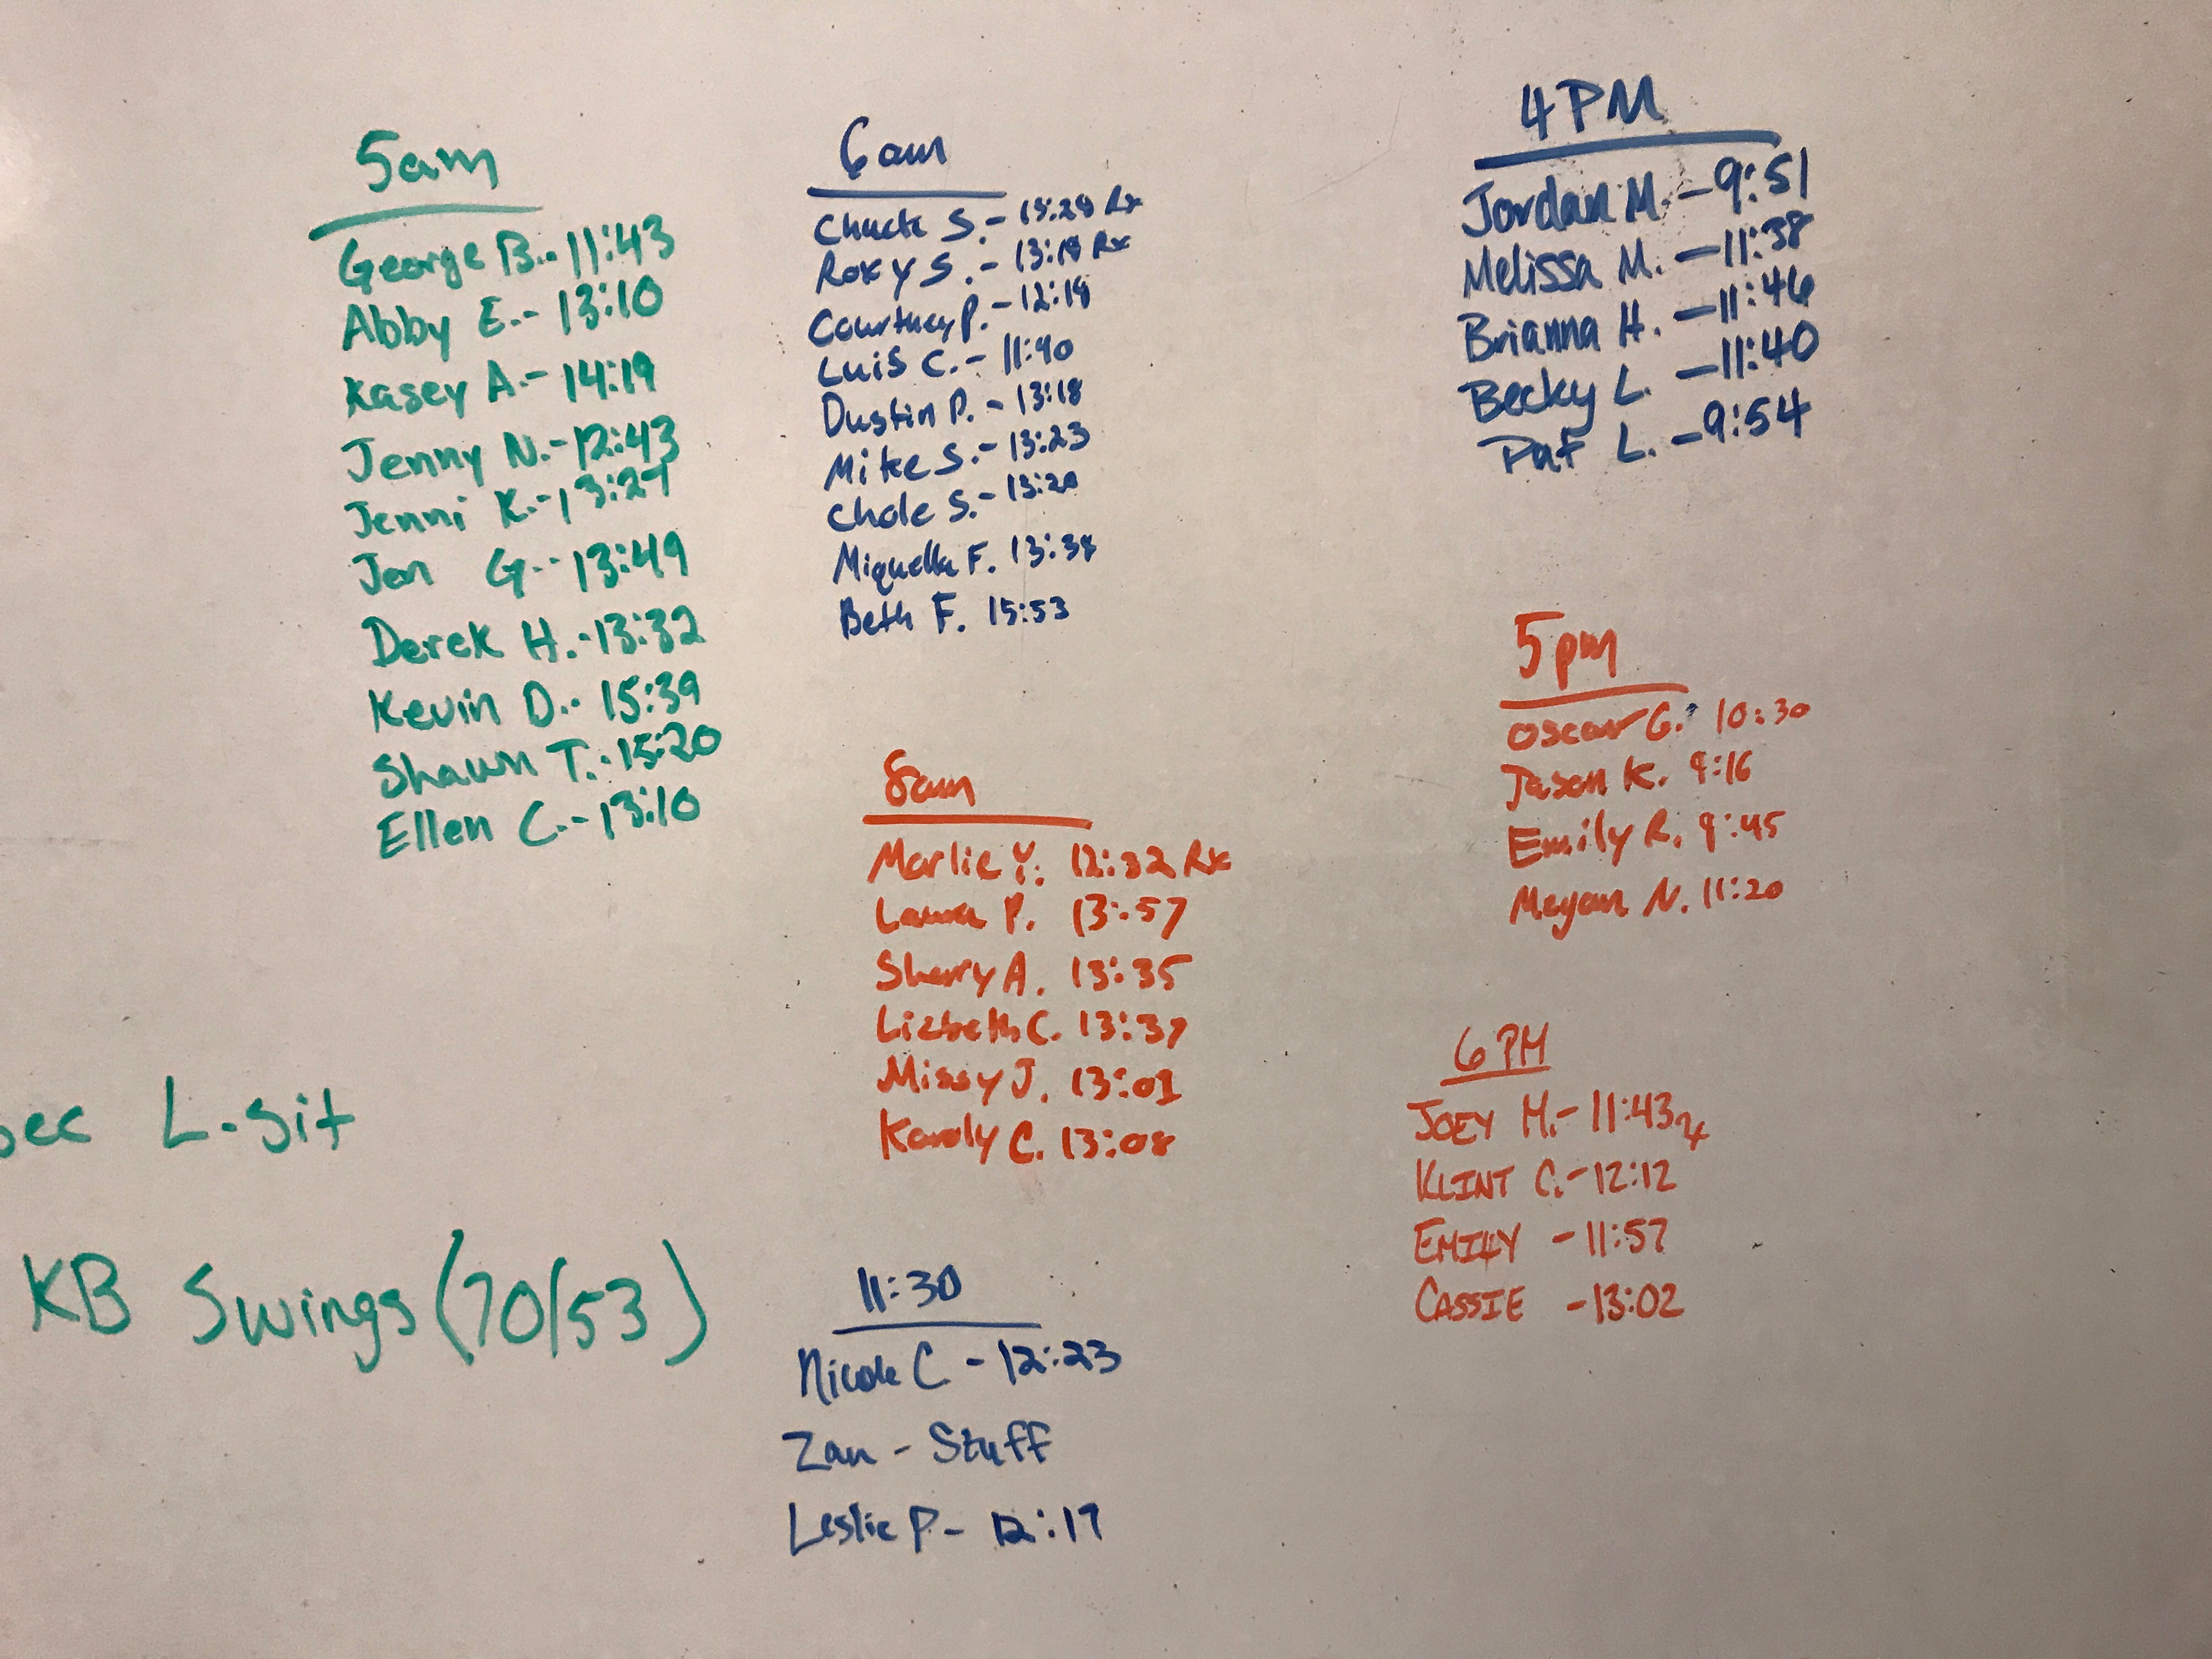 5am
George B.- 11:43
Abby E.- 13:10
Kasey A.- 14:19
Jenny N.- 12:43
Jenni K.- 13:27
Jen G.- 13:49
Derek H.- 13:32
Kevin D.- 15:39
Shawn T.- 15:20
Ellen C.- 13:10
sec L-sit
KB Swings (70/53)
6am
Chuck S.- Rx
Roxy S.- Rx
Courtney P.-
Luis C.- 11:40
Dustin P.- 13:18
Mike S.- 13:23
Chole S.- 13:20
Miquella F. 13:38
Beth F. 15:53
8am
Marlie Y. 12:32 Rx
Laura P. 13:57
Sherry A. 13:35
Lizbeth C. 13:37
Missy J. 13:01
Karoly C. 13:08
11:30
Nicole C - 12:23
Zan - Stuff
Leslie P - 12:17
4PM
Jordan M. - 9:51
Melissa M. - 11:38
Brianna H. - 11:46
Becky L. - 11:40
Pat L. - 9:54
5pm
Oscar G. 10:30
Jason K. 9:16
Emily R. 9:45
Megan N. 11:20
6PM
JOEY M.- 11:43
KLINT C.- 12:12
EMILY - 11:57
CASSIE - 13:02